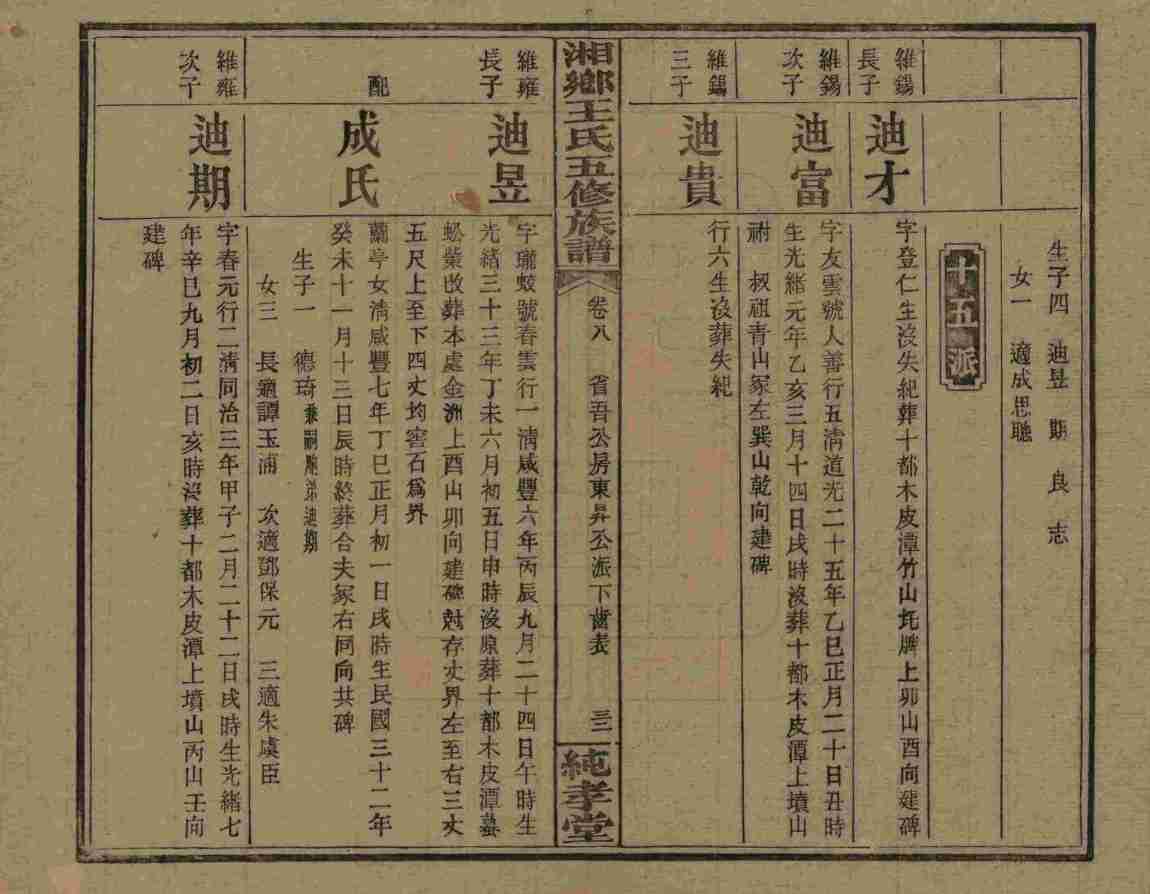 生子四　迪昱　期　良　志
女一　適成思聰
十五派
維錫長子
迪才
字登仁生沒失紀葬十都木皮潭竹山坨牌上卯山酉向建碑
維錫次子
迪富
字友雲號人善行五清道光二十五年乙巳正月二十日丑時
生光緒元年乙亥三月十四日戌時沒葬十都木皮潭上墳山
祔　叔祖青山冢左巽山乾向建碑
維錫三子
迪貴
行六生沒葬失紀
湘鄉王氏五修族譜
卷八　省吾公房東昇公派下齒表　三三
純孝堂
維雍長子
迪昱
字瓏蛟號春雲行一清咸豐六年丙辰九月二十四日午時生
光緒三十三年丁未六月初五日申時沒原葬十都木皮潭
蚣柴改葬本處金洲上酉山卯向建碑存丈界左至右三丈
五尺上至下四丈均窖石爲界
配
成氏
蘭亭女清咸豐七年丁巳正月初一日戌時生民國三十二年
癸未十一月十三日辰時終葬合夫冢右同向共碑
生子一　德琦兼嗣胞弟迪期
女三　長適譚玉浦　次適鄧保元　三適朱虞臣
維雍次子
迪期
字春元行二清同治三年甲子二月二十二日戌時生光緒七
年辛巳九月初二日亥時沒葬十都木皮潭上墳山丙山壬向
建碑